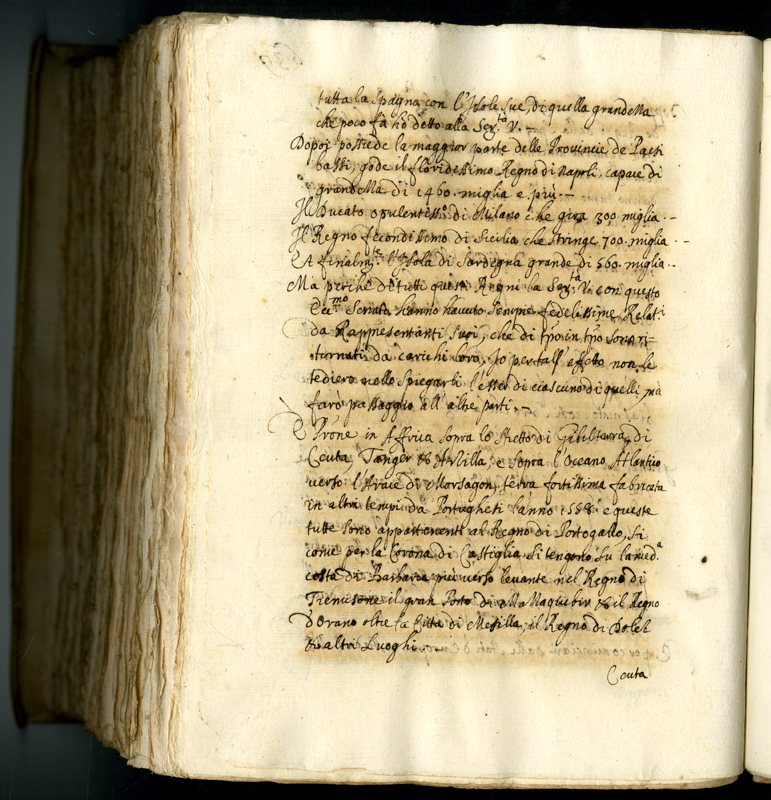 tutta la Spagna con l'Isole sue, di quella grandezza
che poco fà hò detto alla Ser.tà V. –
Dopoi possiede la maggior parte delle Provincie de Paesi
bassi, gode il floridissimo Regno di Napoli, capace di
grandezza di 1460. miglia e più. –
Il Ducato opulentiss.o di Milano che gira 300 miglia. –
Il Regno fecondissimo di Sicilia che stringe 700. miglia. –
Et finalm.te l'Isola di Sardegna grande di 560. miglia. –
Mà perche di tutti questi Regni la Ser.tà V. con questo
Ecc.mo Senato hanno havuto sempre fedelissime Relat.i
da Rappresentanti suoi, che di tpo in tpo sono ri-
tornati da carichi loro, Io per tall' effetto non le
tedierò nello spiegarli l'esser di ciascuno di quelli, mà
farò passaggio all' altre parti. –
in Affrica sopra lo stretto di Gibilterra, di
Ceuta, Tanger & Arzilla, e sopra l'Oceano Atlantico
verso di Marsagon, terra fortissima fabricata
in altri tempi da Portughesi l'anno 1558. e queste
tutte sono appartenenti al Regno di Portogallo, si
come per la Corona di Castiglia si tengono su la med.a
costa di Barbaria più verso levante nel Regno di
il gran Porto di & il Regno
d'Orano oltre la Città di Melilla, il Regno di
& altri Luoghi. –
Ceuta